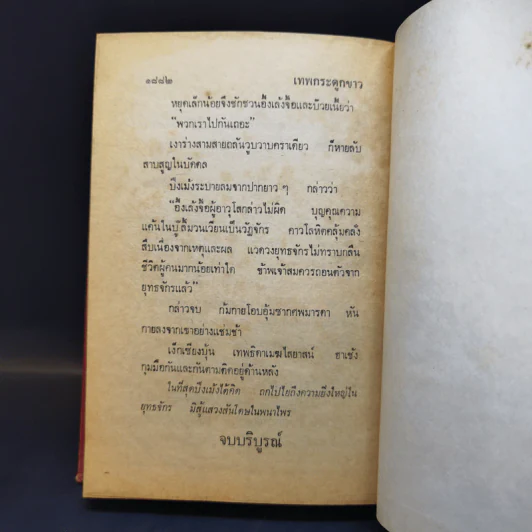 ๑๔๘๒ เทพกระดูกขาว
หยุดเล็กน้อยจึงชักชวนอึ้งเล้งจื้อและบ๊วยเนี้ยว่า
"พวกเราไปกันเถอะ"
เงาร่างสามสายถลันวูบวาบคราเดียว ก็หายลับ
สาบสูญในบัดดล
บึงเม้งระบายลมจากปากยาว ๆ กล่าวว่า
"อึ้งเล้งจื้อผู้อาวุโสกล่าวไม่ผิด บุญคุณความ
แค้นในบู๊ลิ้มวนเวียนเป็นวัฏจักร คาวโลหิตคลุ้มคลั่ง
สืบเนื่องจากเหตุและผล แวดวงยุทธจักรไม่ทราบกลืน
ชีวิตผู้คนมากน้อยเท่าใด ข้าพเจ้าสมควรถอนตัวจาก
ยุทธจักรแล้ว"
กล่าวจบ ก้มกายโอบอุ้มซากศพมารดา หัน
กายลงจากเขาอย่างแช่มช้า
เง็กเซียงบุ้น เทพธิดาเมฆไสยาสน์ ฮาเซ้ง
กุมมือกันและกันตามติดอยู่ด้านหลัง
ในที่สุดบึงเม้งได้คิด ถกไปไยถึงความยิ่งใหญ่ใน
ยุทธจักร มิสู้แสวงสันโดษในพนาไพร
จบบริบูรณ์